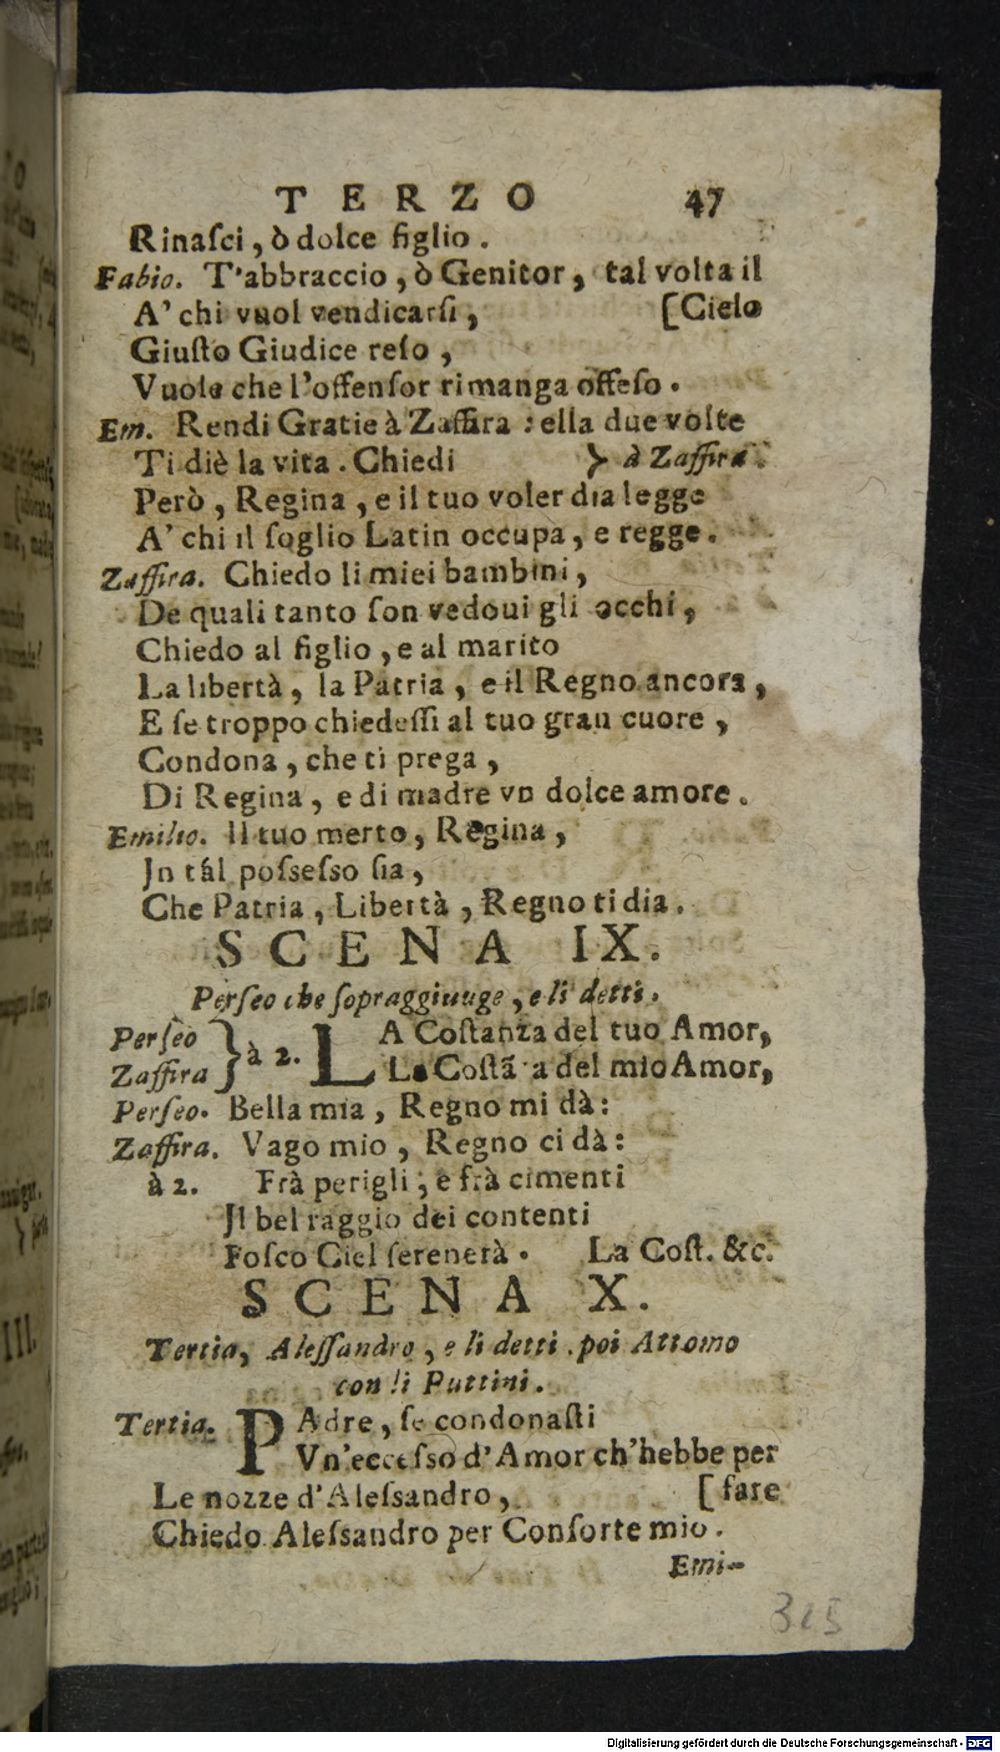 TERZO 47
Rinaſci, ò dolce figlio.
Fabio. T'abbraccio, ò Genitor, tal volta il
A' chi vuol vendicarſi, [Cielo
Giuſto Giudice reſo,
Vuole che l'offenſor rimanga offeſo.
Em. Rendi Gratie à Zaffira: ella due volte
Ti diè la vita. Chiedi } à Zaffira.
Però, Regina, e il tuo voler dia legge
A' chi il ſoglio Latin occupa, e regge.
Zaffira. Chiedo li miei bambini,
De quali tanto ſon vedoui gli occhi,
Chiedo al figlio, e al marito
La libertà, la Patria, e il Regno ancora,
E ſe troppo chiedeſſi al tuo gran cuore,
Condona, che ti prega,
Di Regina, e di madre vn dolce amore.
Emilio. Il tuo merto, Regina,
Jn tál poſseſso ſia,
Che Patria, Libertà, Regno ti dia.
SCENA IX.
Perſeo che ſopraggiuuge, e li detti.
Perſeo } à 2. LA Coſtanza del tuo Amor,
Zaffira } La Coſtã a del mio Amor,
Perſeo. Bella mia, Regno mi dà:
Zaffira. Vago mio, Regno ci dà:
à 2. Frà perigli, e frà cimenti
Jl bel raggio dei contenti
Foſco Ciel ſerenerà. La Coſt. &c.
SCENA X.
Tertia, Aleſſandro, e li detti. poi Attomo
con li Puttini.
Tertia. PAdre, ſe condonaſti
Vn'ecceſso d'Amor ch'hebbe per
Le nozze d'Aleſsandro, [fare
Chiedo Aleſsandro per Conſorte mio.
Emi-
325
Digitalisierung gefördert durch die Deutsche Forschungsgemeinschaft - DFG